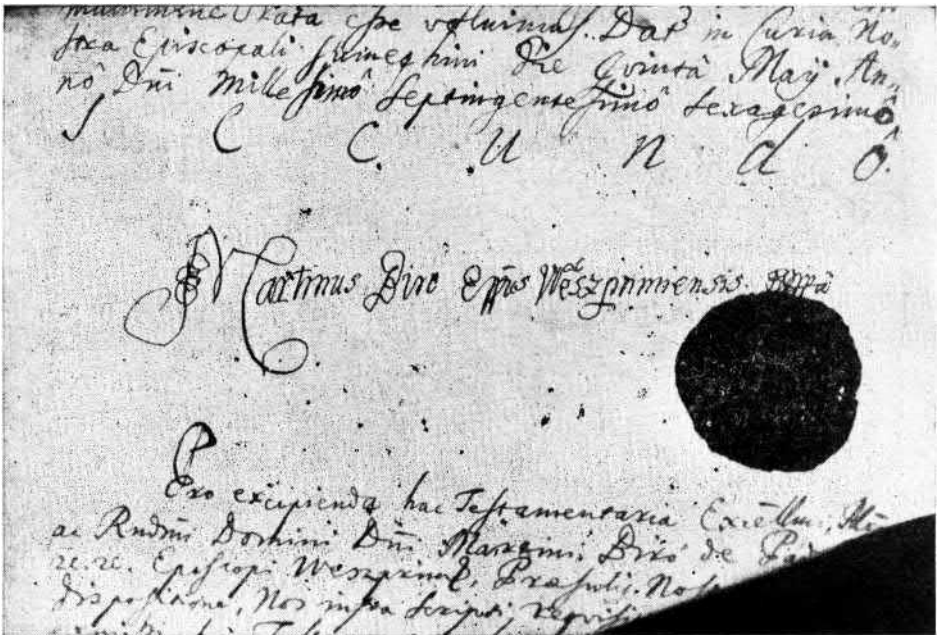 rata esse voluimus. Dat in Curia No-
stra Episcopali Sümeghini Die Quintâ Maÿ An-
nô Dñi Millesimô Septingentesimô Sexagesimô
S e c u n d ô.
Martinus Biro Eppus Weszprimiensis mppâ
Pro excipienda hac Testamentaria Excellmi,
ac Rndmi Domini Dñi Martini Biró de
Episcopi Weszprim, Præsulis
dispositione, Nos infra scripti